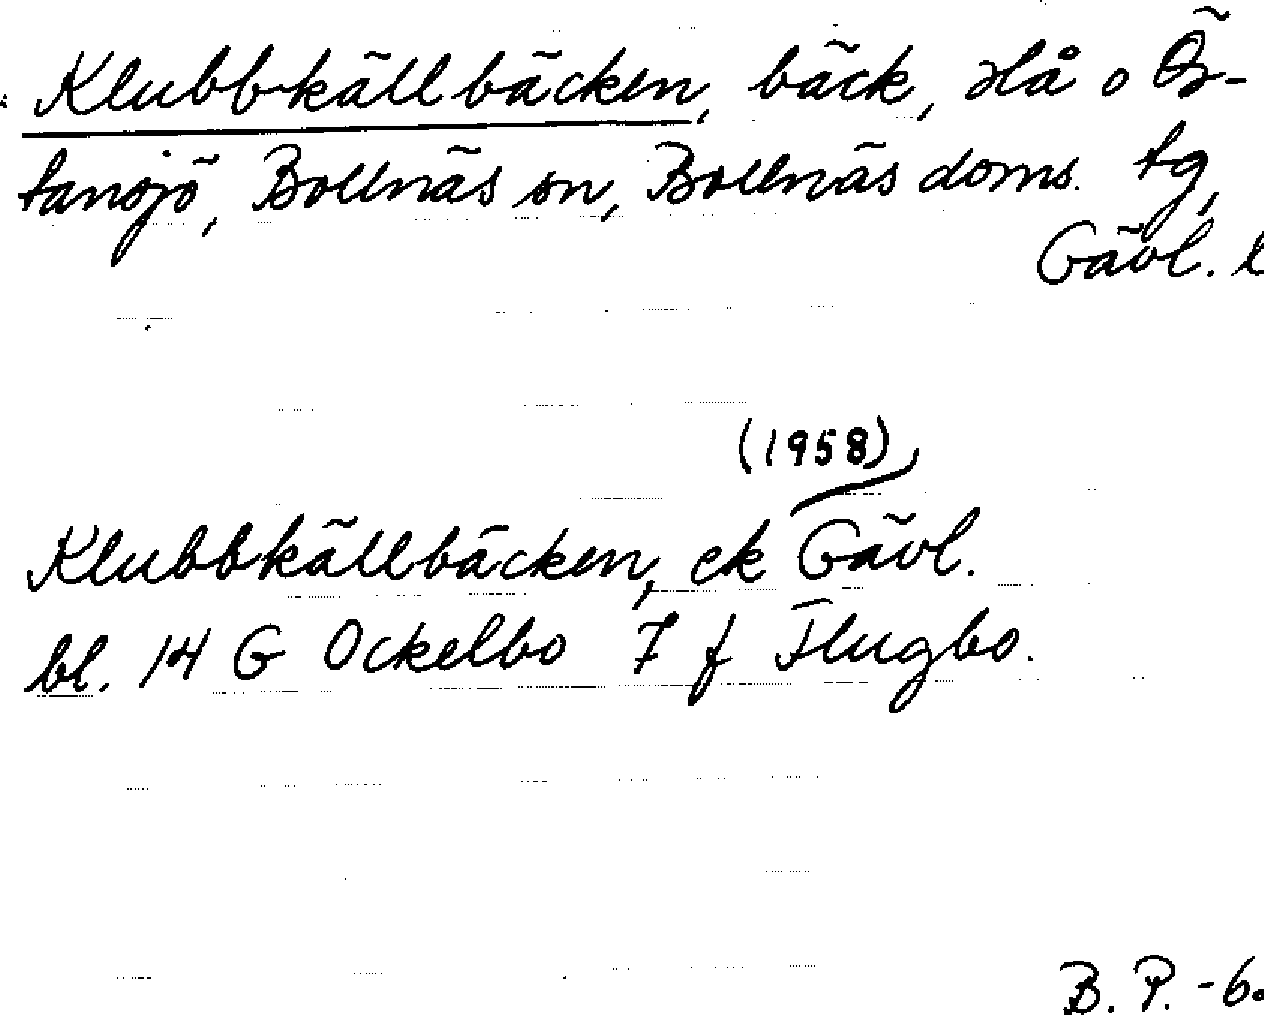 Klubbkällbäcken, bäck, Hå o Ös-
tansjö, Bollnäs sn, Bollnäs doms. tg,
Gävl. l
(1958)
Klubbkällbäcken, ek Gävl.
bl. 14 G Ockelbo 7 f Flugbo.
B. P. -60